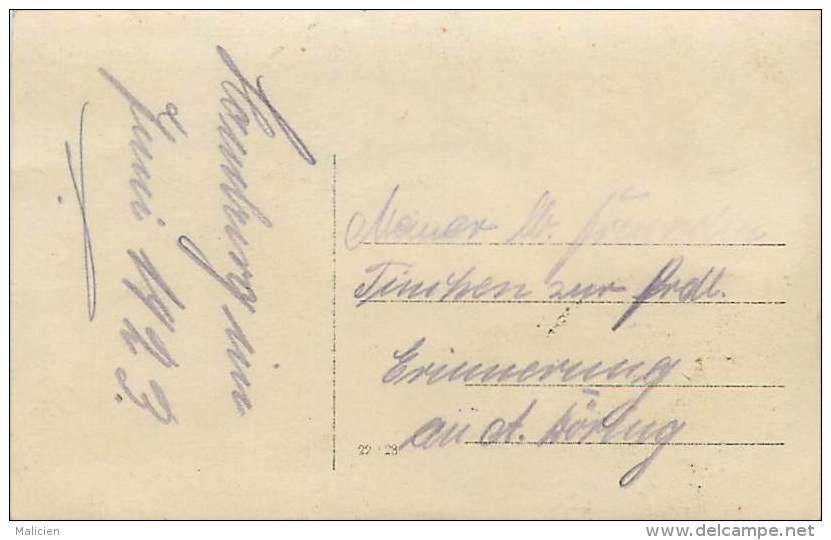 Homburg im
Juni 1923
Meiner lb. Freundin
Tinchen zur frdl.
Erinnerung
an A. Döring
22 28
Malicien
www.delcampe.net